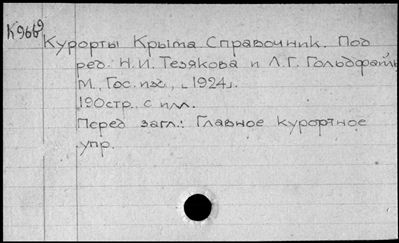 К9669
Курорты Крыма Справочник. Под
ред. Н.И. Тезякова и Л.Г. Гольдфайль
М., Гос. изд., [1924].
190стр. с илл.
Перед загл.: Главное курортное
упр.